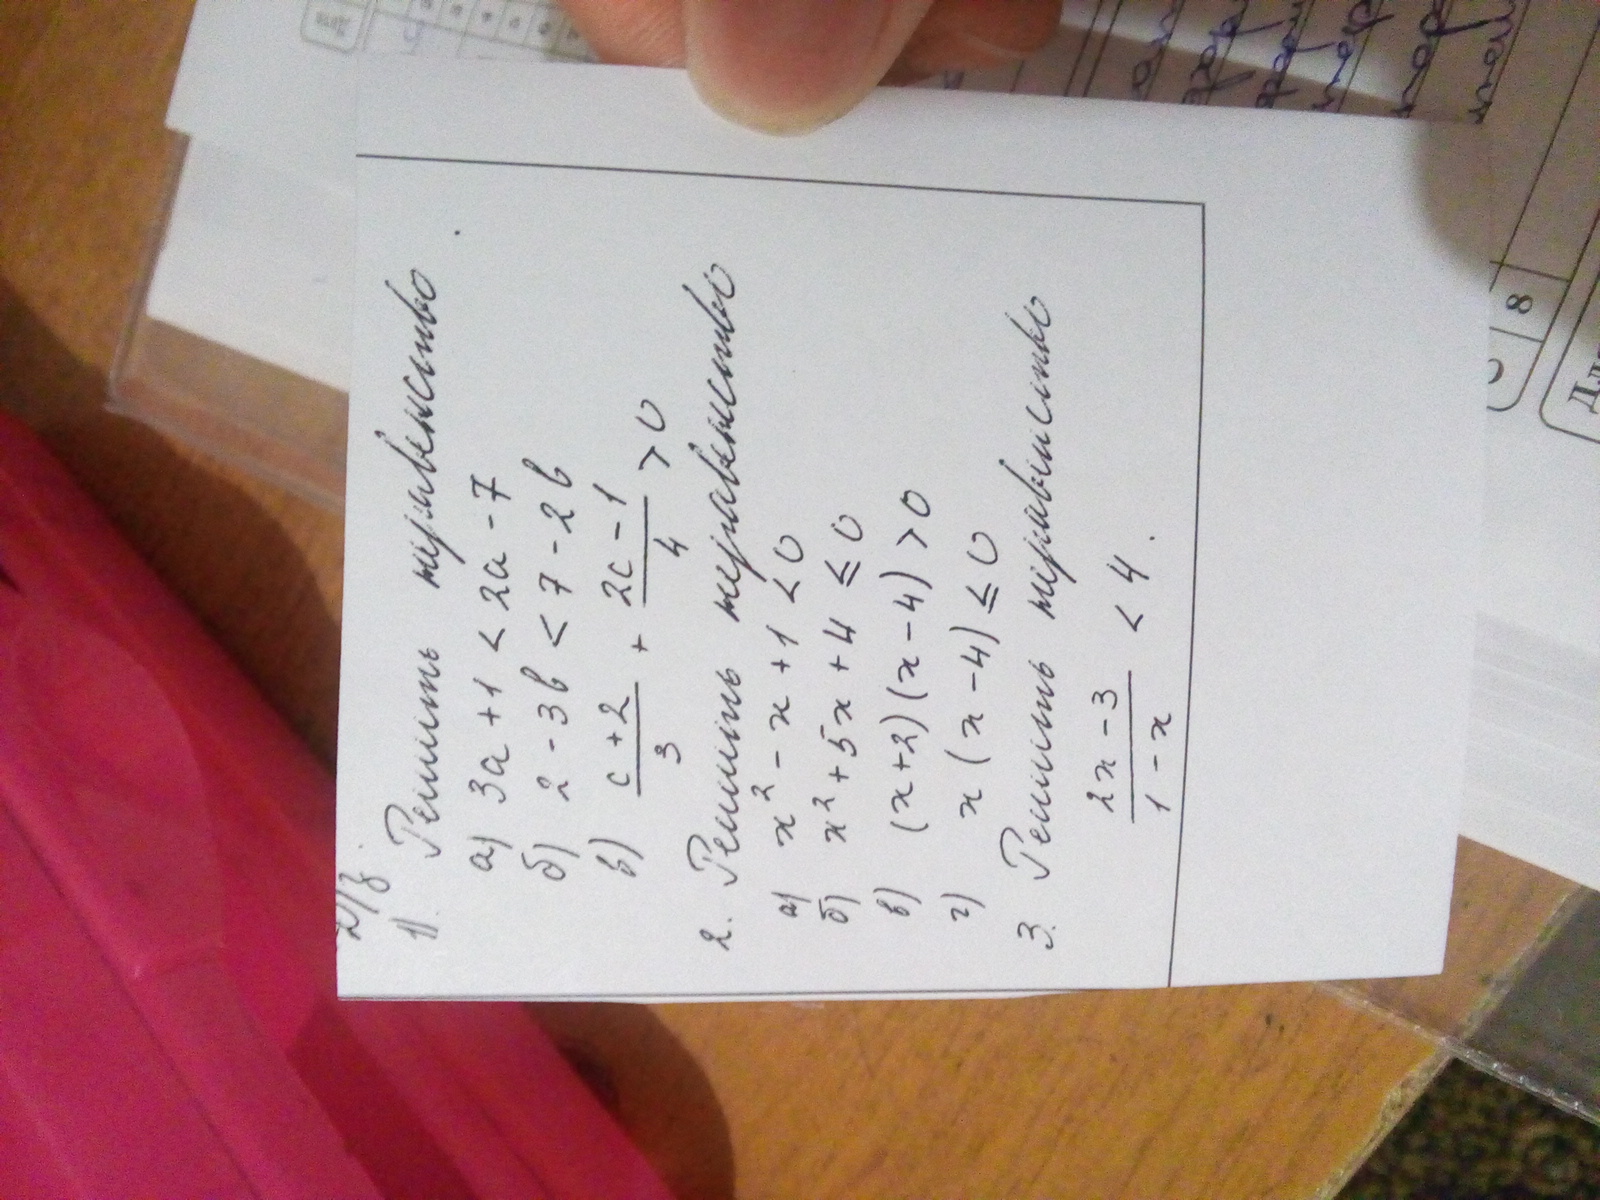 Д/з.
1). Решить неравенство
а) 3a + 1 < 2a - 7
б) 2 - 3b < 7 - 2b
в) (c + 2)/3 + (2c - 1)/4 > 0
2. Решить неравенство
а) x² - x + 1 < 0
б) x² + 5x + 4 ≤ 0
в) (x + 2)(x - 4) > 0
г) x (x - 4) ≤ 0
3. Решить неравенство
(2x - 3)/(1 - x) < 4.
8